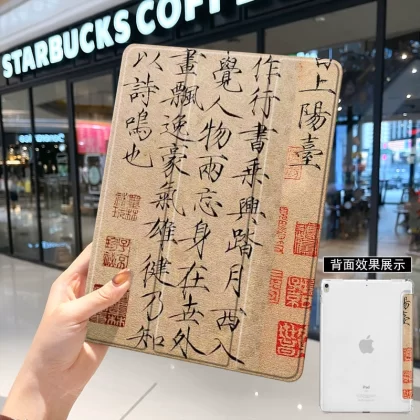 STARBUCKS COFF
白上陽臺
作行書乘興踏月西入
覺人物兩忘身在世外
畫飄逸豪氣雄健乃知
以詩鳴也
背面效果展示
iPad